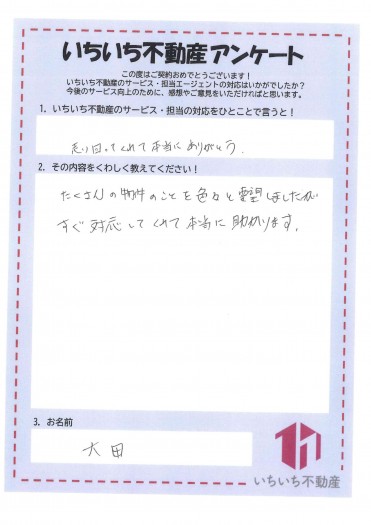 いちいち不動産アンケート
この度はご契約おめでとうございます！
いちいち不動産のサービス・担当エージェントの対応はいかがでしたか？
今後のサービス向上のために、感想やご意見をいただければと思います。
1．いちいち不動産のサービス・担当の対応をひとことで言うと！
走り回ってくれて本当にありがとう。
2．その内容をくわしく教えてください！
たくさんの物件のことを色々と要望しましたが
すぐ対応してくれて本当に助かります。
3．お名前
大田
いちいち不動産